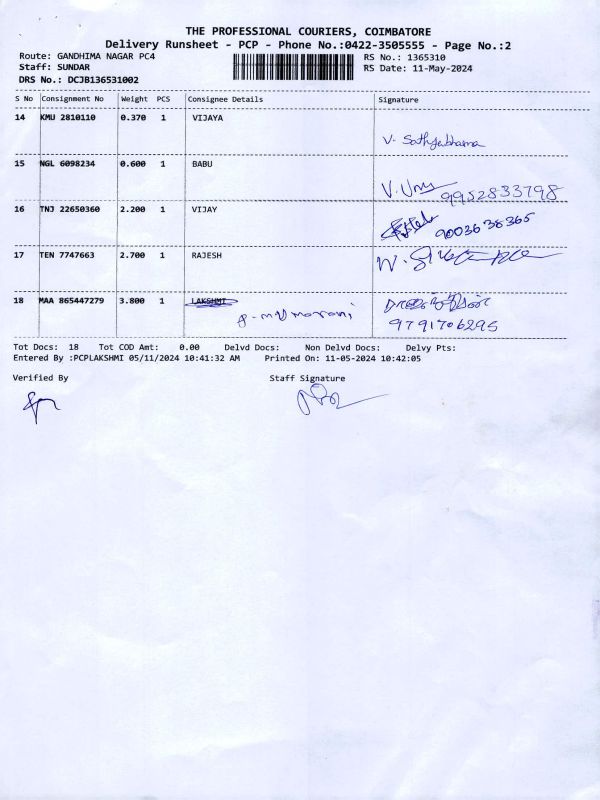 THE PROFESSIONAL COURIERS, COIMBATORE
Delivery Runsheet - PCP - Phone No.:0422-3505555 - Page No.:2
Route: GANDHIMA NAGAR PC4 RS No.: 1365310
Staff: SUNDAR RS Date: 11-May-2024
DRS No.: DCJB136531002
S No Consignment No Weight PCS Consignee Details Signature
14 KMU 2810110 0.370 1 VIJAYA
V. Sathyabhama
15 NGL 6098234 0.600 1 BABU
9952833798
16 TNJ 22650360 2.200 1 VIJAY
9003638365
17 TEN 7747663 2.700 1 RAJESH
18 MAA 865447279 3.800 1 LAKSHMI
9791706295
Tot Docs: 18 Tot COD Amt: 0.00 Delvd Docs: Non Delvd Docs: Delvy Pts:
Entered By :PCPLAKSHMI 05/11/2024 10:41:32 AM Printed On: 11-05-2024 10:42:05
Verified By Staff Signature